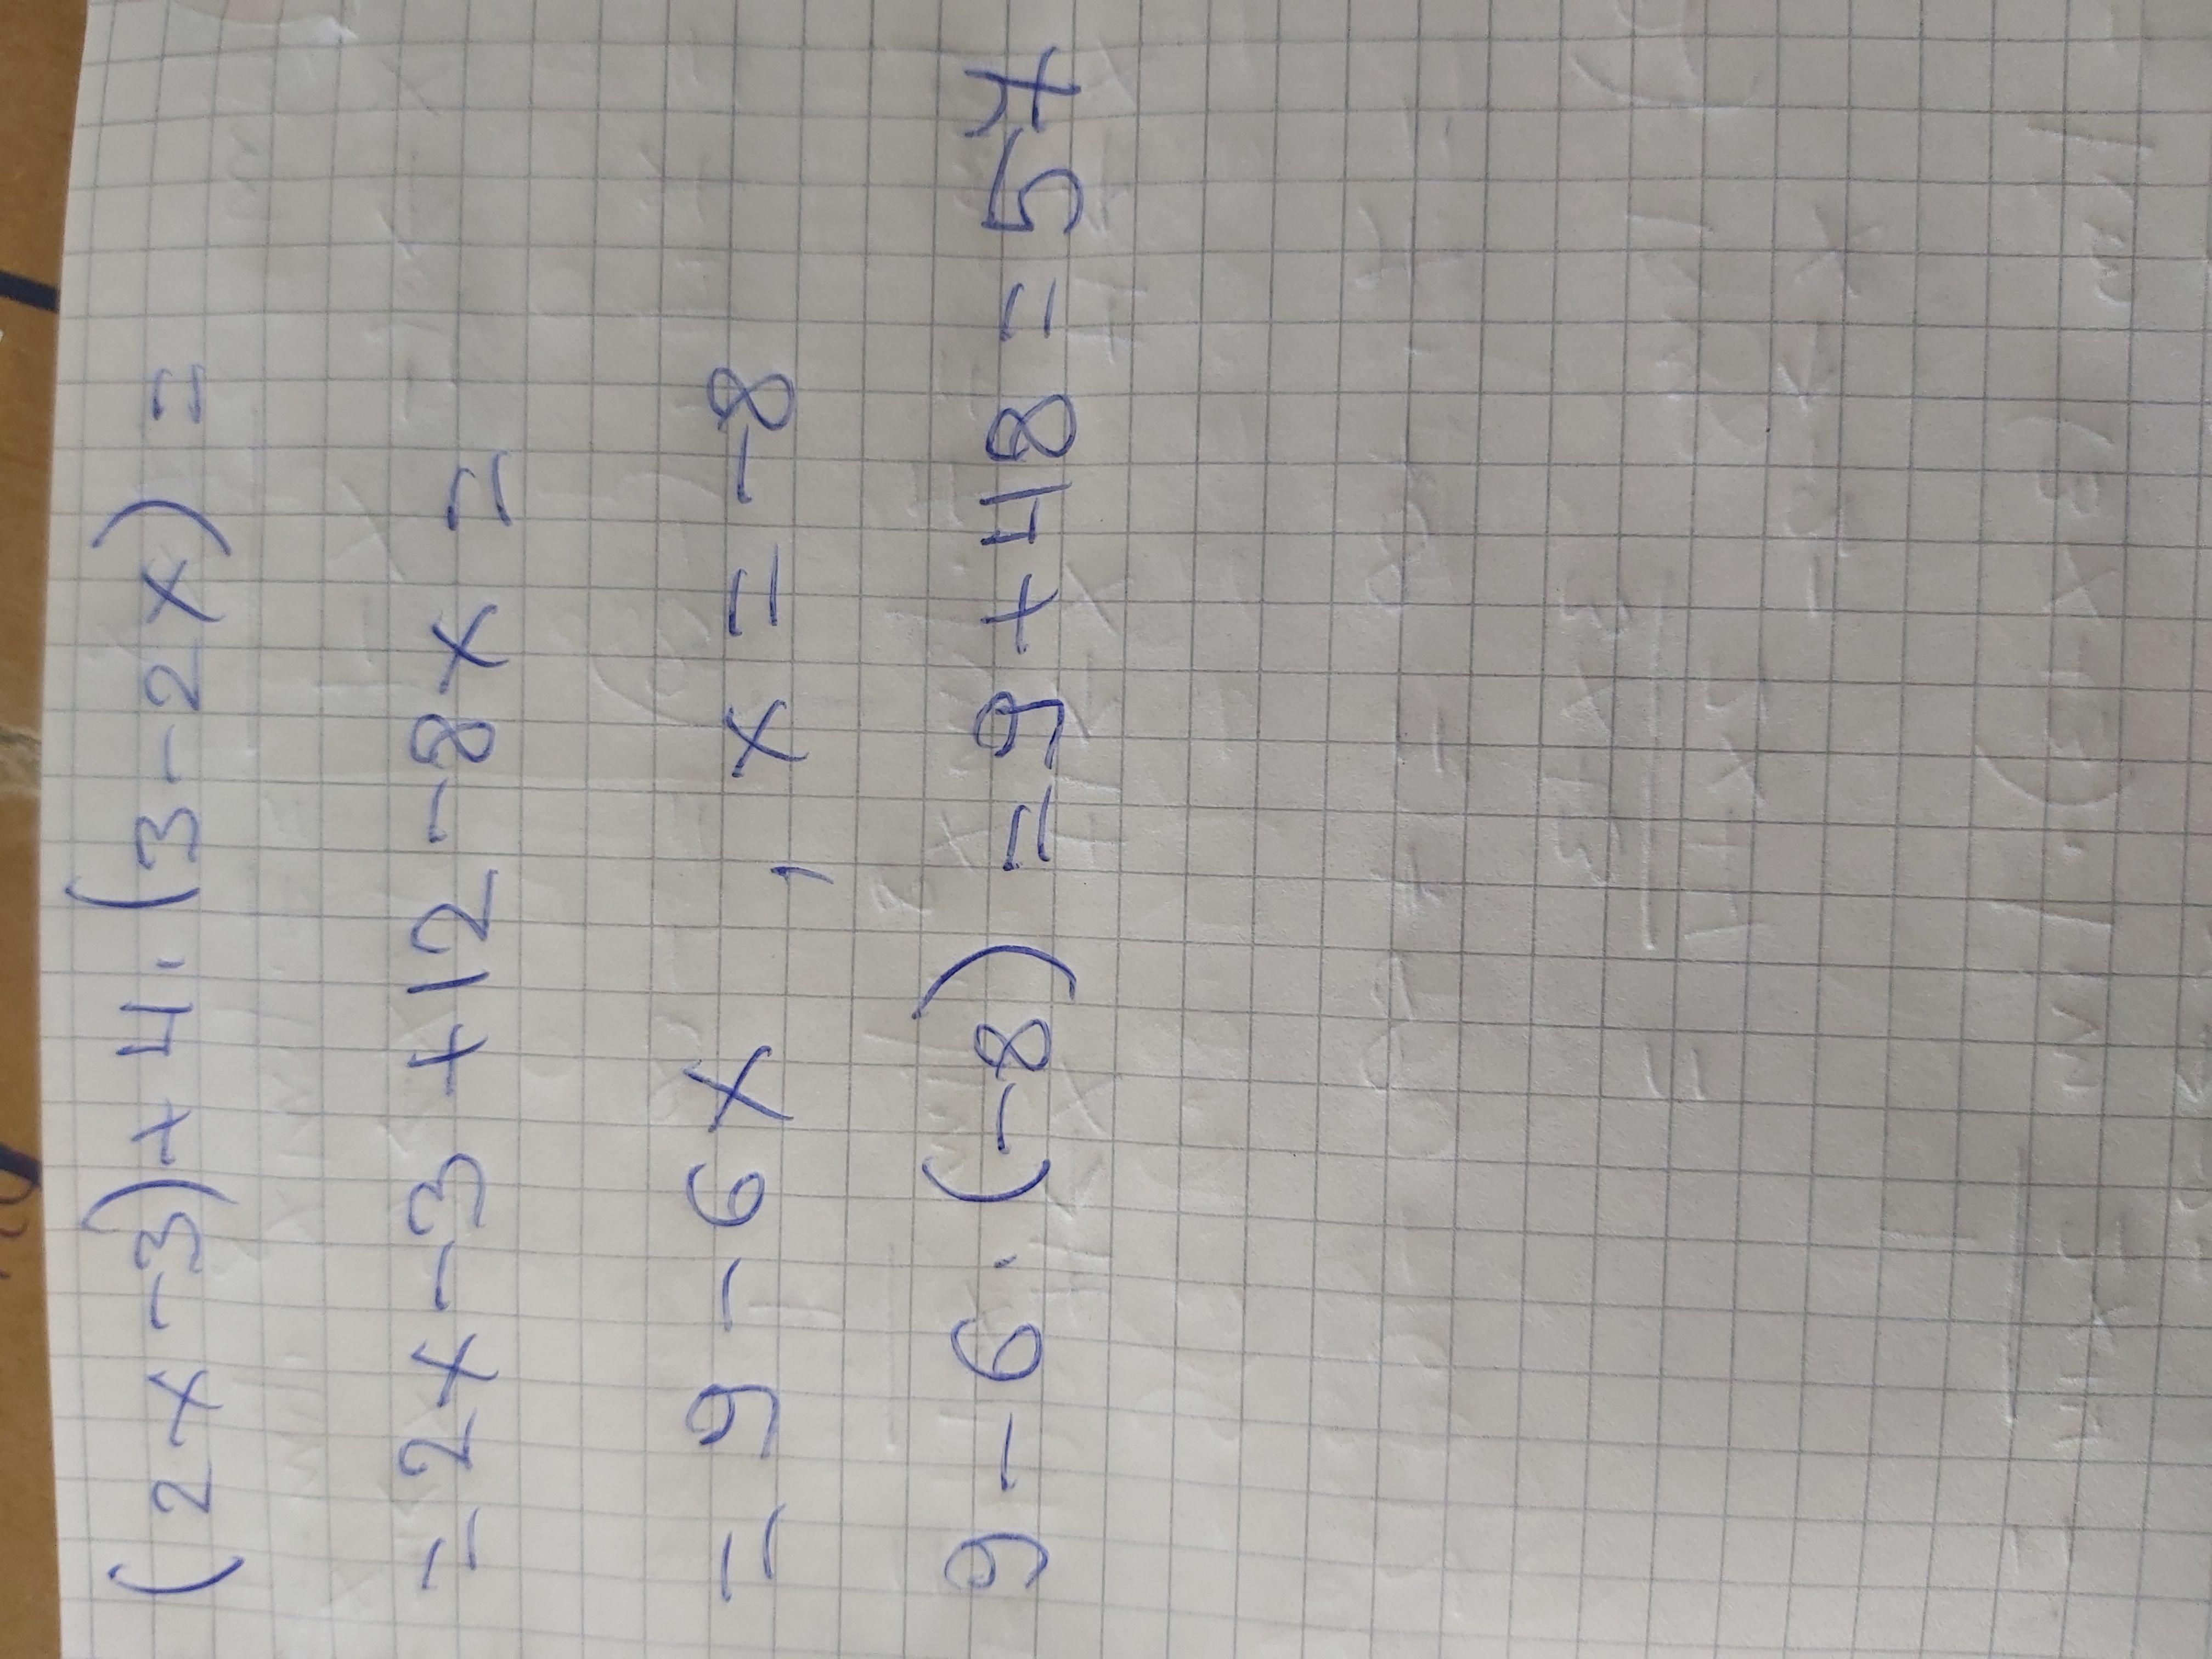 (2x-3)+4·(3-2x)=
=2x-3+12-8x=
=9-6x , x=-8
9-6·(-8)=9+48=57